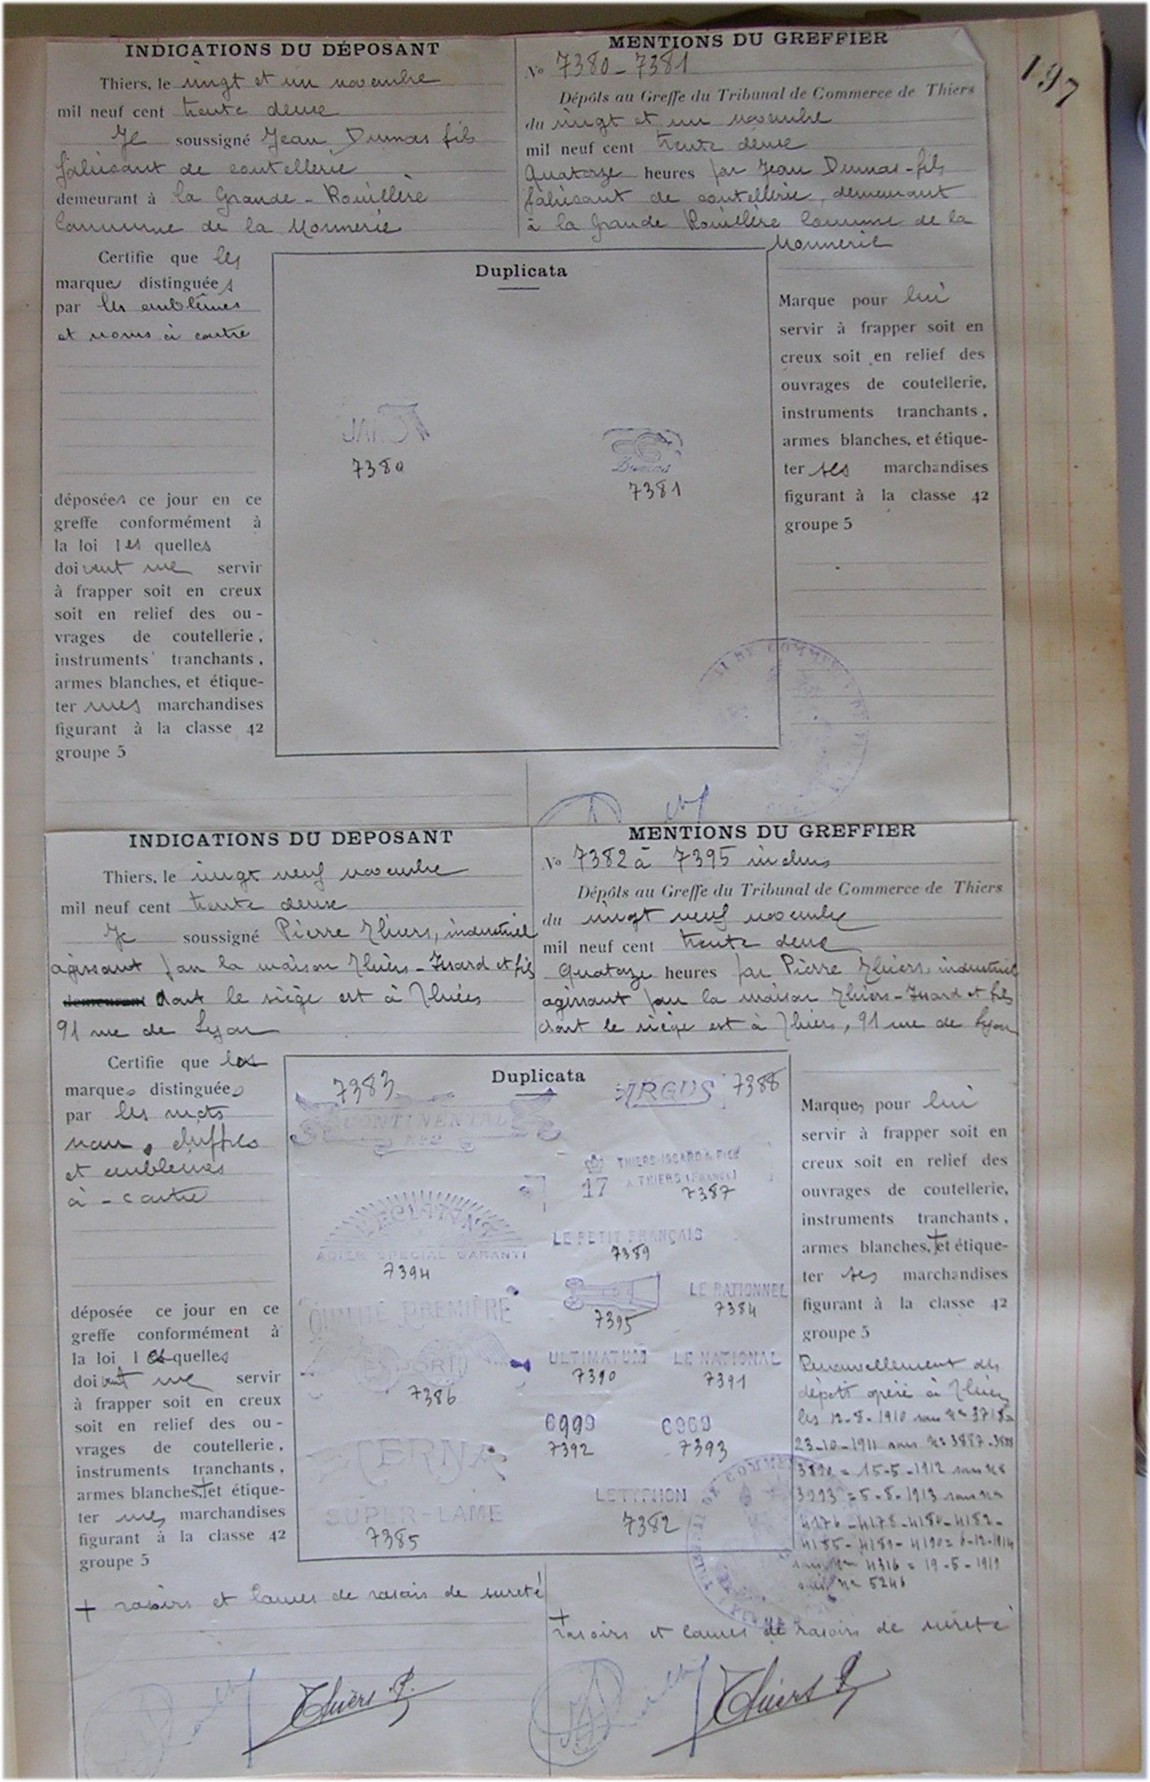 197
INDICATIONS DU DÉPOSANT
Thiers, le vingt et un novembre
mil neuf cent trente deux
Je soussigné Jean Dumas fils
fabricant de coutellerie
demeurant à la Grande-Rouillère
Commune de la Monnerie
Certifie que les
marques distinguées
par les emblèmes
et noms ci contre
déposées ce jour en ce
greffe conformément à
la loi les quelles
doivent me servir
à frapper soit en creux
soit en relief des ou-
vrages de coutellerie,
instruments tranchants,
armes blanches, et étique-
ter mes marchandises
figurant à la classe 42
groupe 5
MENTIONS DU GREFFIER
No 7380-7381
Dépôts au Greffe du Tribunal de Commerce de Thiers
du vingt et un novembre
mil neuf cent trente deux
Quatorze heures par Jean Dumas-fils
fabricant de coutellerie, demeurant
à la Grande Rouillère Commune de la
Monnerie
Duplicata
7380
Dumas
7381
Marque pour lui
servir à frapper soit en
creux soit en relief des
ouvrages de coutellerie,
instruments tranchants,
armes blanches, et étique-
ter ses marchandises
figurant à la classe 42
groupe 5
INDICATIONS DU DEPOSANT
Thiers, le vingt neuf novembre
mil neuf cent trente deux
Je soussigné Pierre Thiers, industriel
agissant pour la maison Thiers-Issard et fils
demeurant dont le siège est à Thiers
91 rue de Lyon
Certifie que les
marques distinguées
par les mots
nom, chiffres
et emblèmes
ci-contre
déposée ce jour en ce
greffe conformément à
la loi les quelles
doivent me servir
à frapper soit en creux
soit en relief des ou-
vrages de coutellerie,
instruments tranchants,
armes blanches,+et étique-
ter mes marchandises
figurant à la classe 42
groupe 5
+ rasoirs et lames de rasoirs de sureté
Thiers P.
MENTIONS DU GREFFIER
No 7382 à 7395 inclus
Dépôts au Greffe du Tribunal de Commerce de Thiers
du vingt neuf novembre
mil neuf cent trente deux
Quatorze heures par Pierre Thiers, industriel
agissant pour la maison Thiers-Issard et fils
dont le siège est à Thiers, 91 rue de Lyon
Duplicata
7383
CONTINENTAL
No 2
ARGUS 7388
THIERS-ISSARD & FILS
17 A THIERS (FRANCE)
7387
ACIER SPECIAL GARANTI
7394
LE PETIT FRANÇAIS
7389
7395
LE RATIONNEL
7384
PREMIÈRE
EXPORT
7386
ULTIMATUM
7390
LE NATIONAL
7391
7392
7393
SUPER-LAME
7385
LE TYPHON
7382
Marques pour lui
servir à frapper soit en
creux soit en relief des
ouvrages de coutellerie,
instruments tranchants,
armes blanches,+et étique-
ter ses marchandises
figurant à la classe 42
groupe 5
Renouvellement des
dépots opéré à Thiers
les 12-8-1910
23-10-1911
15-5-1912
5-8-1913
4176-4178-4180-4182-
4316 = 19-5-1919
5246
+ rasoirs et lames de rasoirs de sureté
Thiers P.